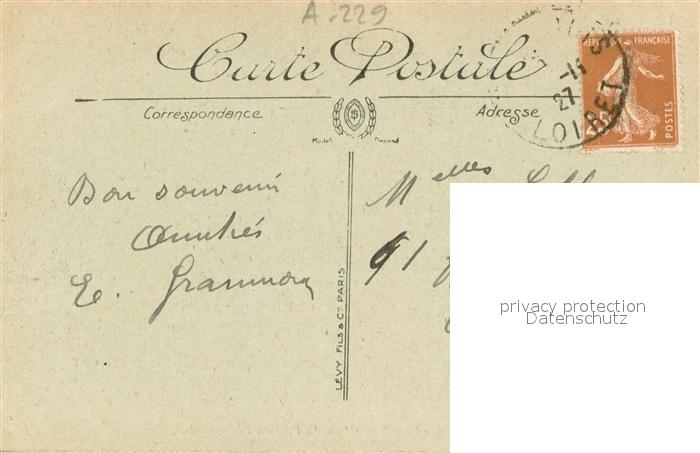 A-229
Carte Postale
Correspondance
Adresse
RÉPUBLIQUE FRANÇAISE
POSTES
27 -11
LOIRET
Modèle Déposé
Bon souvenir
Amitiés
E.
Melles
91
LÉVY FILS & Cie PARIS
privacy protection
Datenschutz